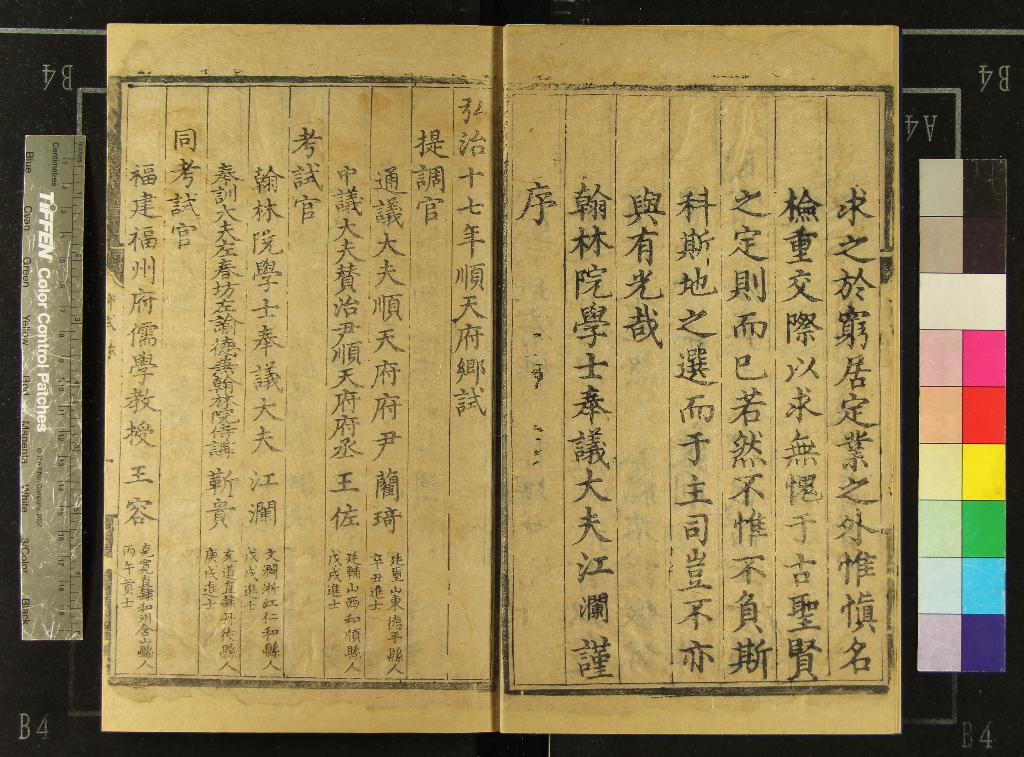 求之於窮居定業之外惟愼名
檢重交際以求無愧于古聖賢
之定則而已若然不惟不負斯
科斯地之選而于主司豈不亦
與有光哉
翰林院學士奉議大夫江瀾謹
序
弘治十七年順天府鄉試
提調官
通議大夫順天府府尹藺琦
廷璽山東德平縣人
辛丑進士
中議大夫贊治尹順天府府丞王佐
廷輔山西和順縣人
戊戌進士
考試官
翰林院學士奉議大夫江瀾
文瀾浙江仁和縣人
戊戌進士
奉訓大夫左春坊左諭德兼翰林院侍講靳貴
充道直隸丹徒縣人
庚戌進士
同考試官
福建福州府儒學教授王容
克寬直隸和州含山縣人
丙午貢士
B4
B4
A4
B4
B4
inches
Centimetres
TIFFEN Color Control Patches
© The Tiffen Company, 2007
Blue
Cyan
Green
Yellow
Red
Magenta
White
3/Color
Black